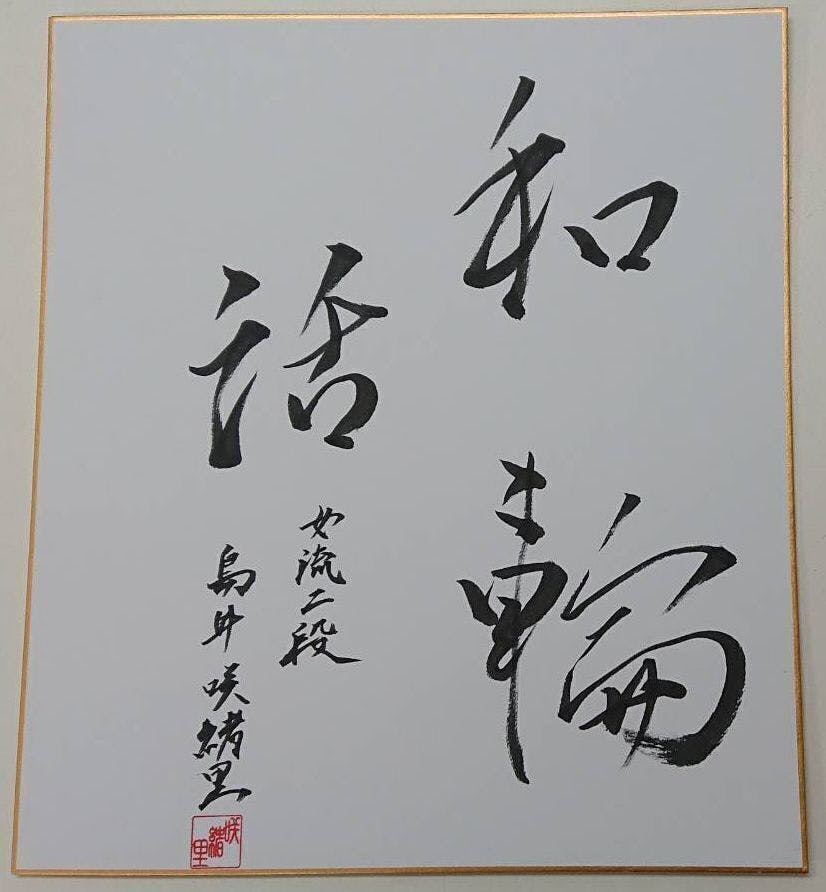 和輪
話
女流二段
島井咲緒里
咲緒里